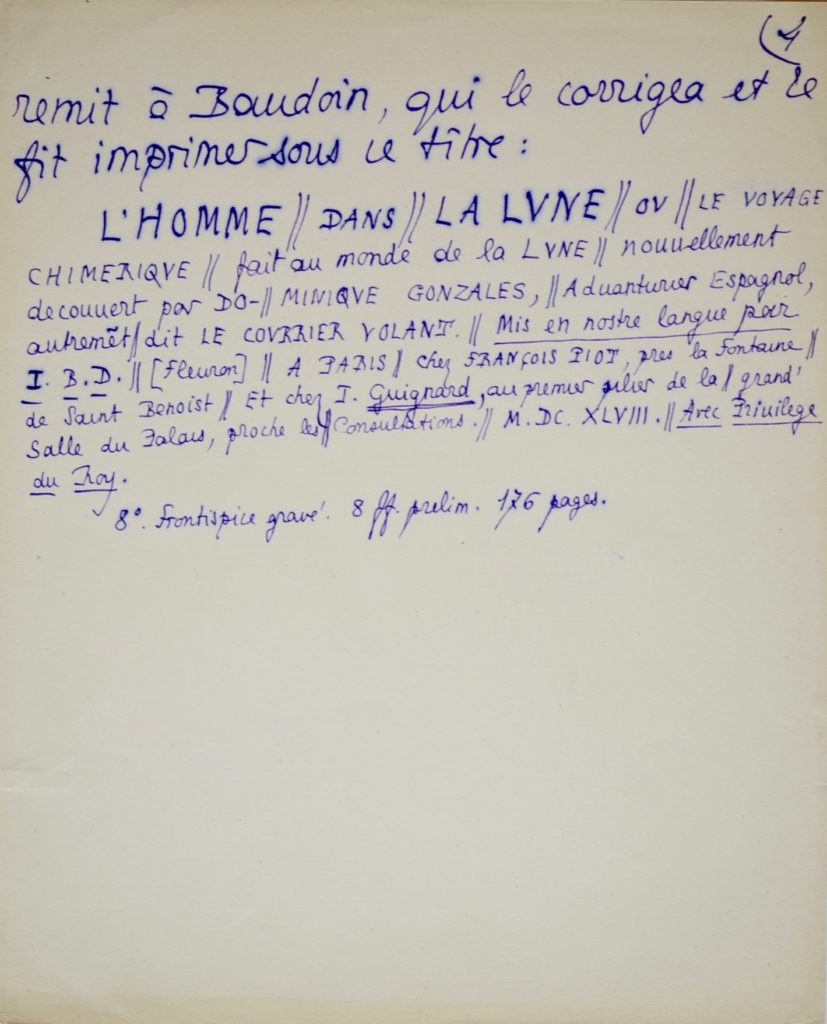 (4
remit à Baudoin, qui le corrigea et le
fit imprimer sous ce titre :
L'HOMME // DANS // LA LVNE // OV // LE VOYAGE
CHIMERIQVE // fait au monde de la LVNE // nouuellement
decouuert par DO-// MINIQVE GONZALES, // Aduanturier Espagnol,
autremẽt // dit LE COVRRIER VOLANT. // Mis en nostre langue par
I. B. D. // [Fleuron] // A PARIS // chez FRANÇOIS PIOT, pres la Fontaine //
de Saint Benoist // Et chez I. Guignard, au premier pilier de la // grand'
Salle du Palais, proche les // Consultations. // M. DC. XLVIII. // Avec Priuilege
du Roy.
8°. Frontispice gravé. 8 ff. prelim. 176 pages.